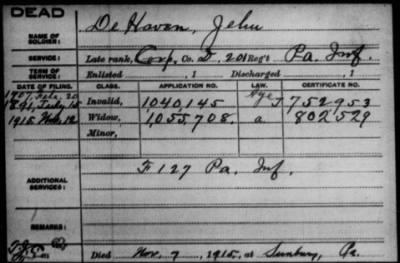 DEAD
NAME OF SOLDIER: De Haven, Jehu
SERVICE: Late rank, Corp, Co. D, 201 Reg't Pa. Inf.
TERM OF SERVICE: Enlisted , 1 Discharged , 1
DATE OF FILING. CLASS. APPLICATION NO. LAW. CERTIFICATE NO.
1907, Feb. 20
1891, July 15 Invalid, 1,040,145 J 752953
1915 Nov. 12 Widow, 1,055,708 a 802,529
Minor,
ADDITIONAL SERVICES: F 127 Pa. Inf.
REMARKS:
Died Nov. 7, 1915, at Sunbury, Pa.